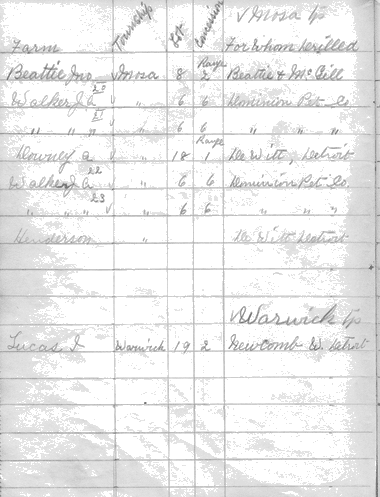 √ Mosa Tp
Farm Township Lot Concession For Whom Drilled
Beattie Jno Mosa 8 Range 2 Beattie & McGill
Walker J A 20 √ " 6 6 Dominion Pet. Co.
" " " 21 √ " 6 6 " " "
Downey A √ " 18 Range 1 De Witt, Detroit
Walker J A 22 √ " 6 6 Dominion Pet. Co.
" " " 23 √ " 6 6 " " "
Henderson " De Witt Detroit
√ Warwick Tp
Lucas I Warwick 19 2 Newcomb W. Detroit